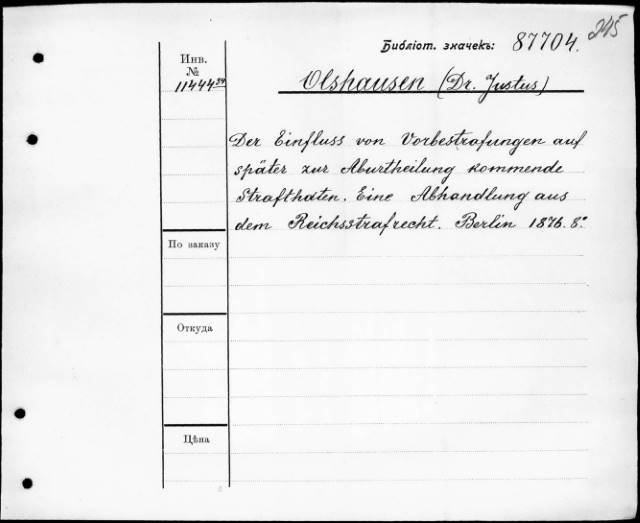 245
Библіот. значекъ: 87704.
Инв.
№
11444
Olshausen (Dr. Justus)
Der Einfluss von Vorbestrafungen auf
später zur Aburtheilung kommende
Strafthaten. Eine Abhandlung aus
dem Reichsstrafrecht. Berlin 1876. 8.º
По заказу
Откуда
Цѣна